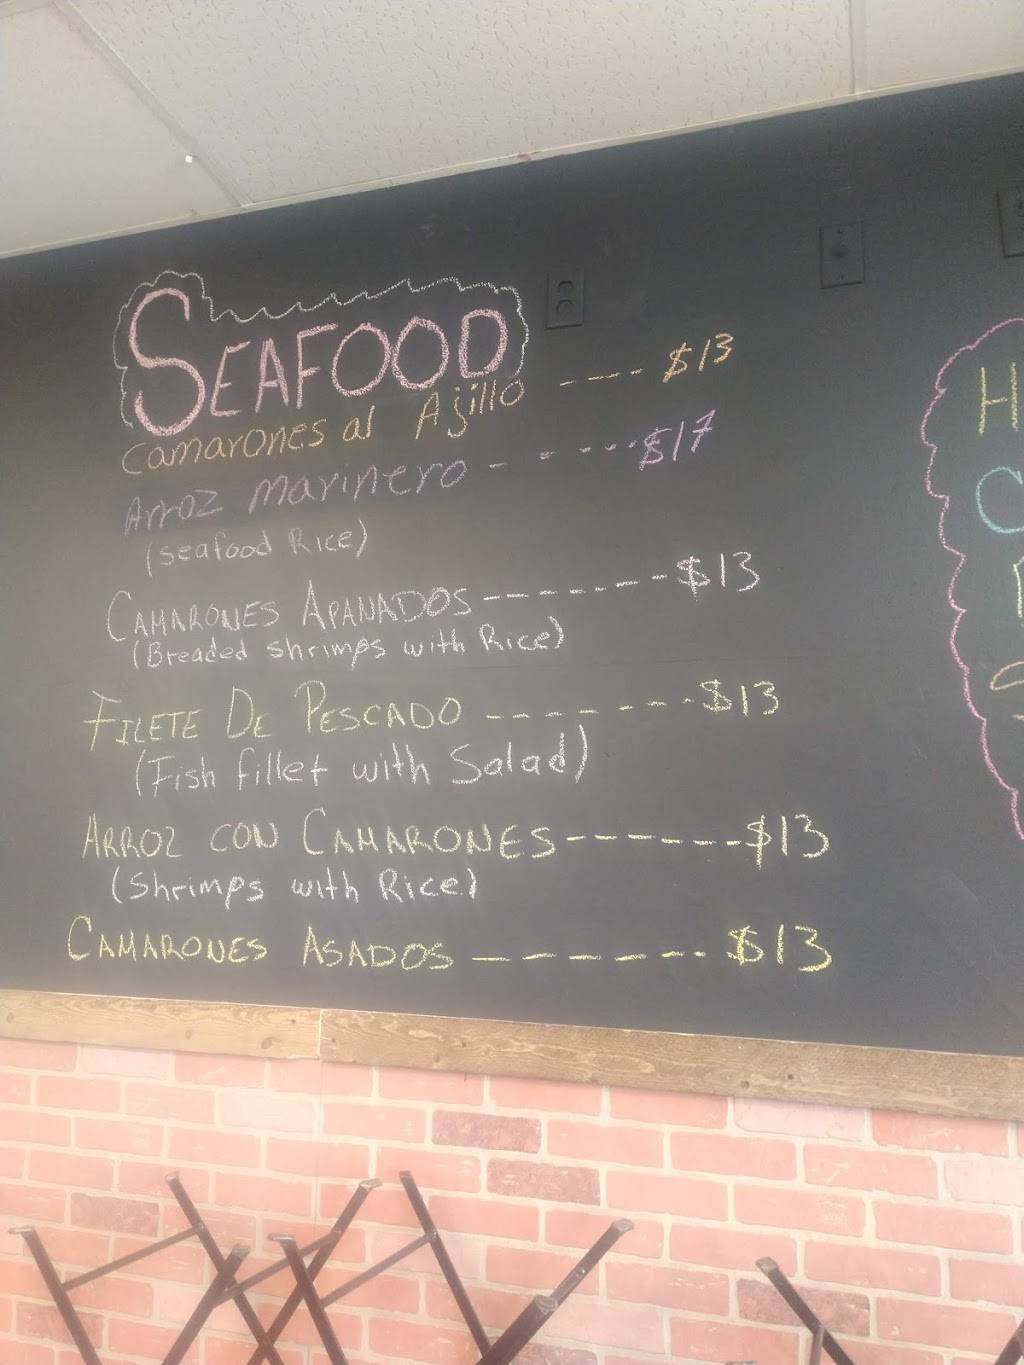 SEAFOOD
camarones al Ajillo ---- $13
Arroz Marinero - - ----- $17
(seafood Rice)
CAMARONES APANADOS ------- $13
(Breaded shrimps with Rice)
FILETE DE PESCADO ------- $13
(Fish fillet with Salad)
ARROZ CON CAMARONES ------- $13
(Shrimps with Rice)
CAMARONES ASADOS ------- $13
H
C